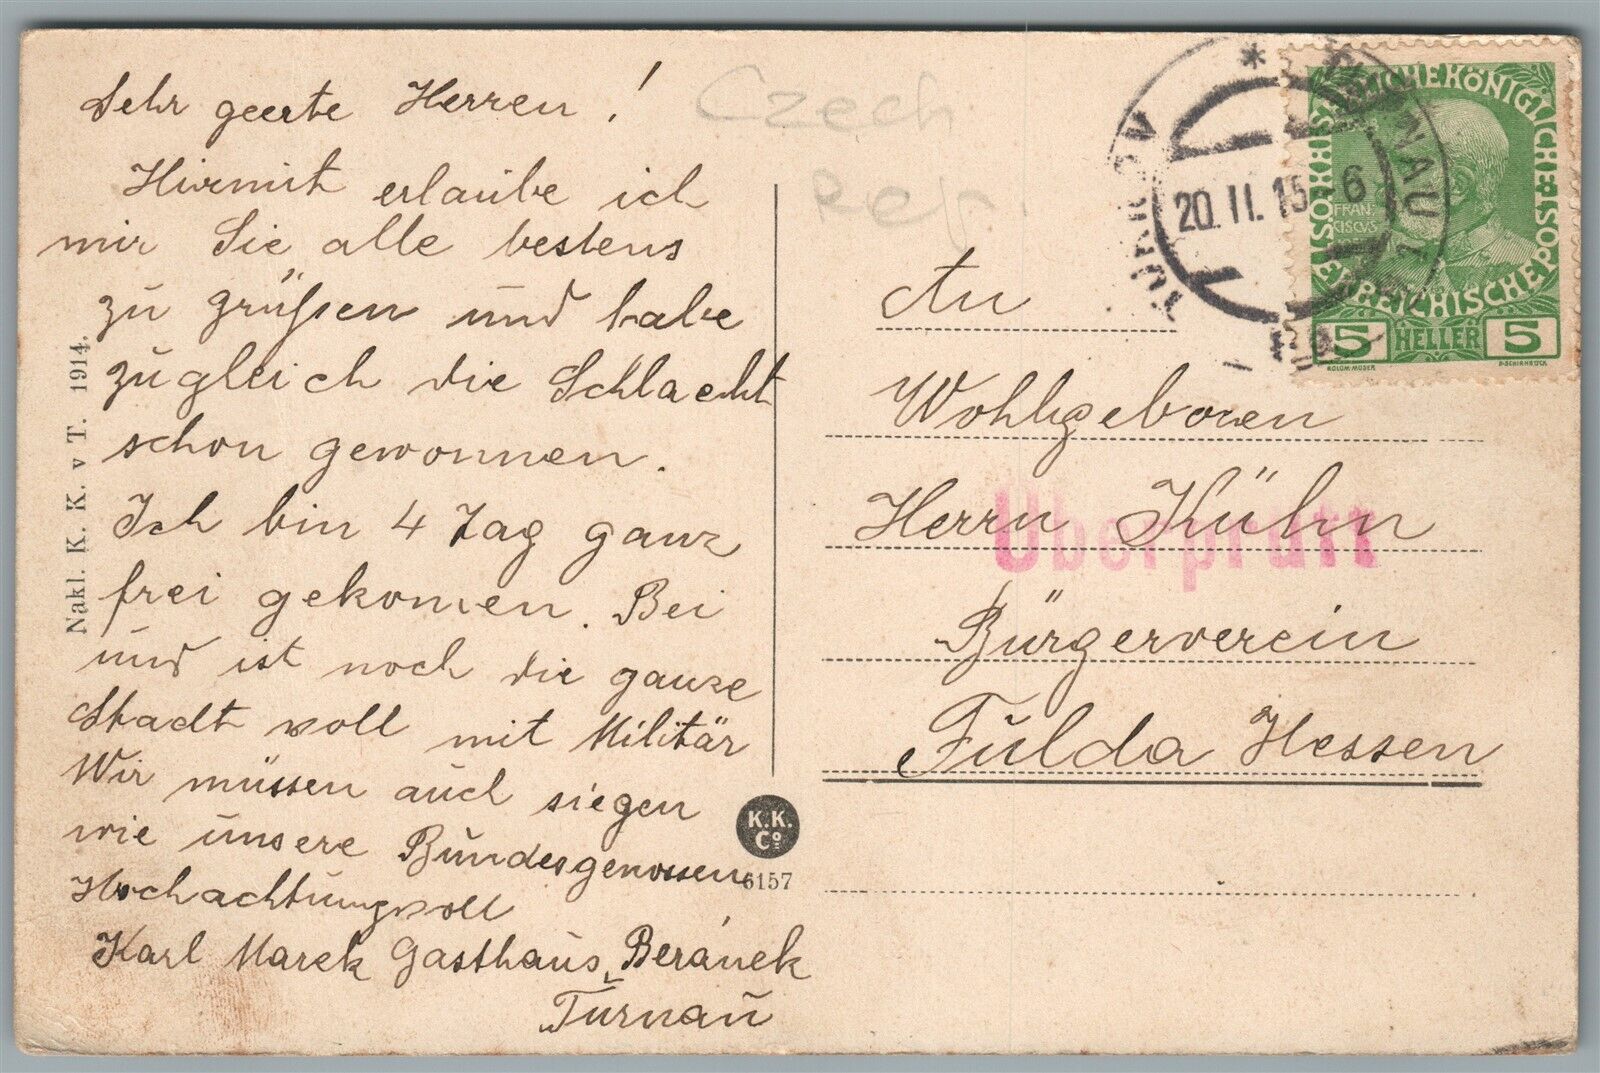 Sehr geerte Herren!
Hirmit erlaube ich
mir Sie alle bestens
zu grüßen und habe
zugleich die Schlacht
schon gewonnen.
Ich bin 4 Tag ganz
frei gekomen. Bei
und ist noch die ganze
Stadt voll mit Militär
Wir müssen auch siegen
wie unsere Bundesgenossen
Hochachtungsvoll
Karl Marek Gasthaus Beránek
Turnau
Nakl. K. K. v T. 1914.
K.K.
Co.
6157
Czech
Rep.
TURNOV
TURNAU 1
20. II. 15 - 6
KAISERLICHE KÖNIGLICHE ÖSTERREICHISCHE POST
FRAN.
CISCVS
5 HELLER 5
KOLOM·MOSER
F·SCHIRNBÖCK
An
Wohlgeboren
Herrn Kühn
Überprüft
Bürgerverein
Fulda Hessen